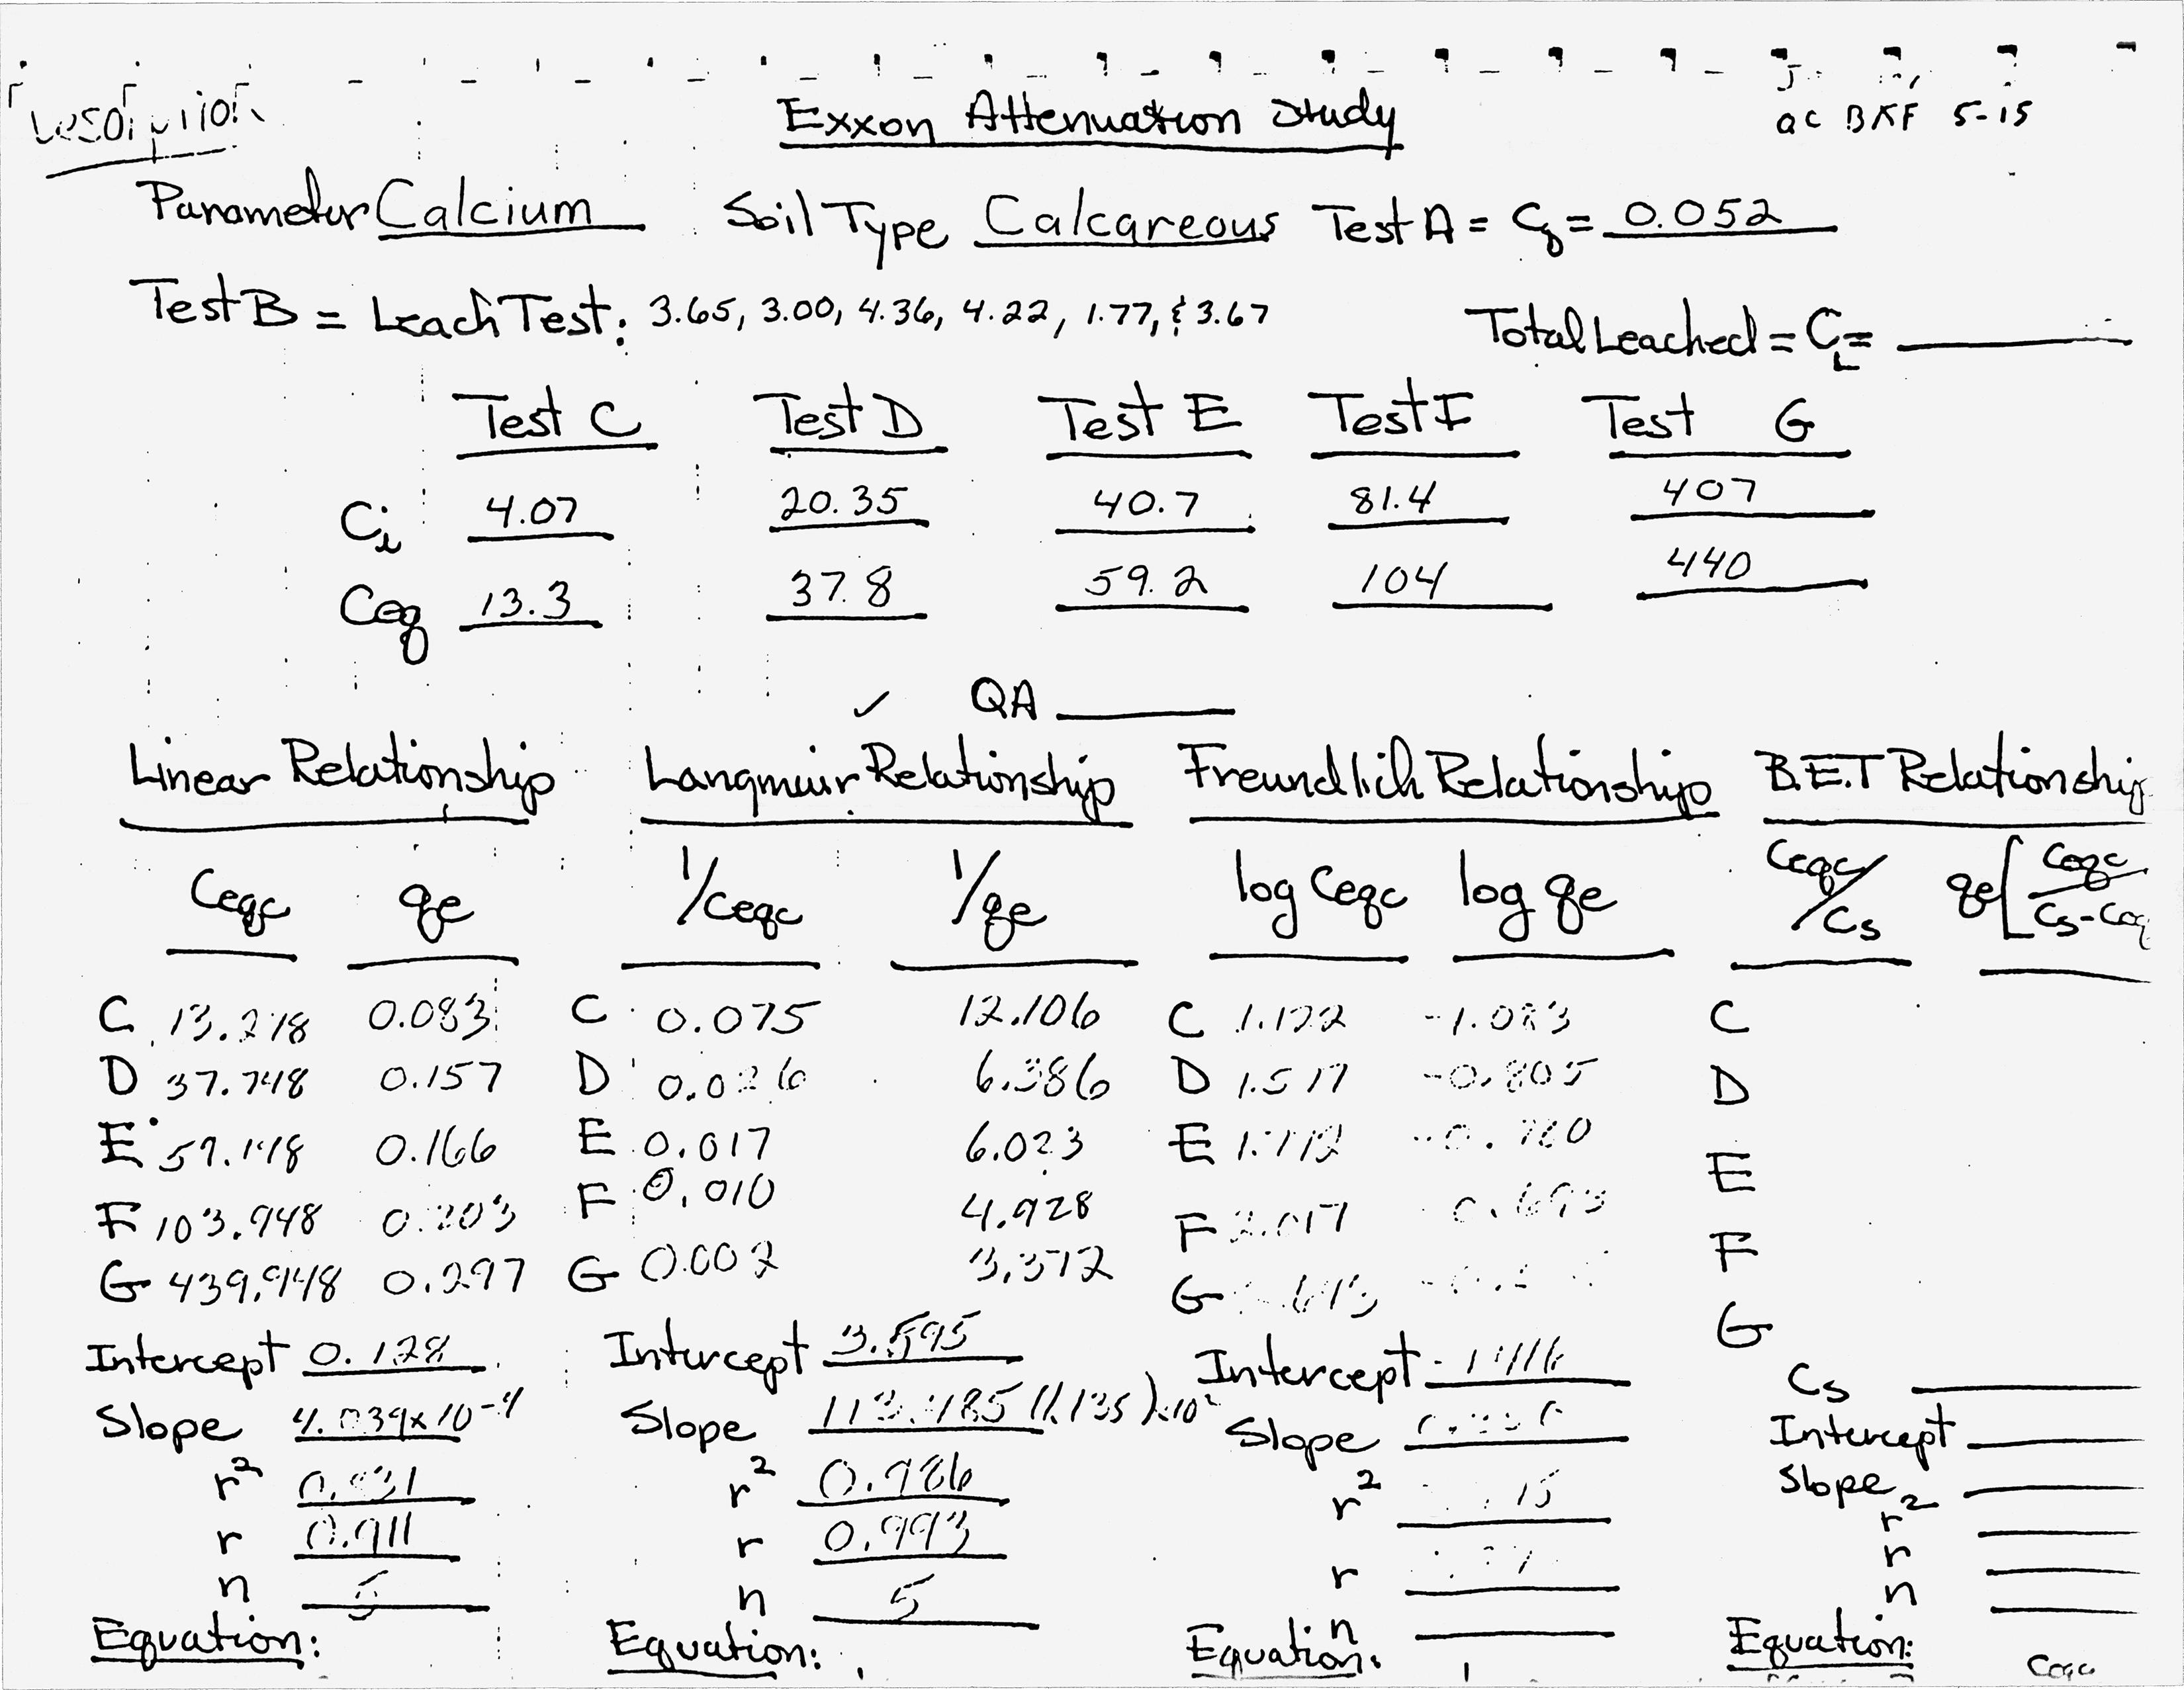 Exxon Attenuation Study
QC BKF 5-15
Parameter Calcium Soil Type Calcareous Test A = C = 0.052
Test B = Leach Test: 3.65, 3.00, 4.36, 4.22, 1.77, & 3.67
Total Leached = CL =
Test C Test D Test E Test F Test G
Ci 4.07 20.35 40.7 81.4 407
Ceq 13.3 37.8 59.2 104 440
✓ QA
Linear Relationship Langmuir Relationship Freundlich Relationship B.E.T Relationship
Ceqc qe 1/Ceqc 1/qe log Ceqc log qe Ceqc/Cs qe[Ceqc/Cs-Ceq
C 13.248 0.083 C 0.075 12.106 C 1.122 -1.083 C
D 37.748 0.157 D 0.026 6.386 D -0.805 D
E 59.148 0.166 E 0.017 6.023 E E
F 103.948 0.203 F 0.010 4.928 F 2.017 F
G 439.948 0.297 G 0.002 3.372 G G
Intercept 0.128 Intercept 3.595 Intercept Cs
Slope 4.039x10-4 Slope 113.485 (1.135)x10² Slope Intercept
r² 0.831 r² 0.986 r² Slope
r 0.911 r 0.993 r r²
n 5 n 5 n r
n
Equation: Equation: Equation: Equation:
Ceqc